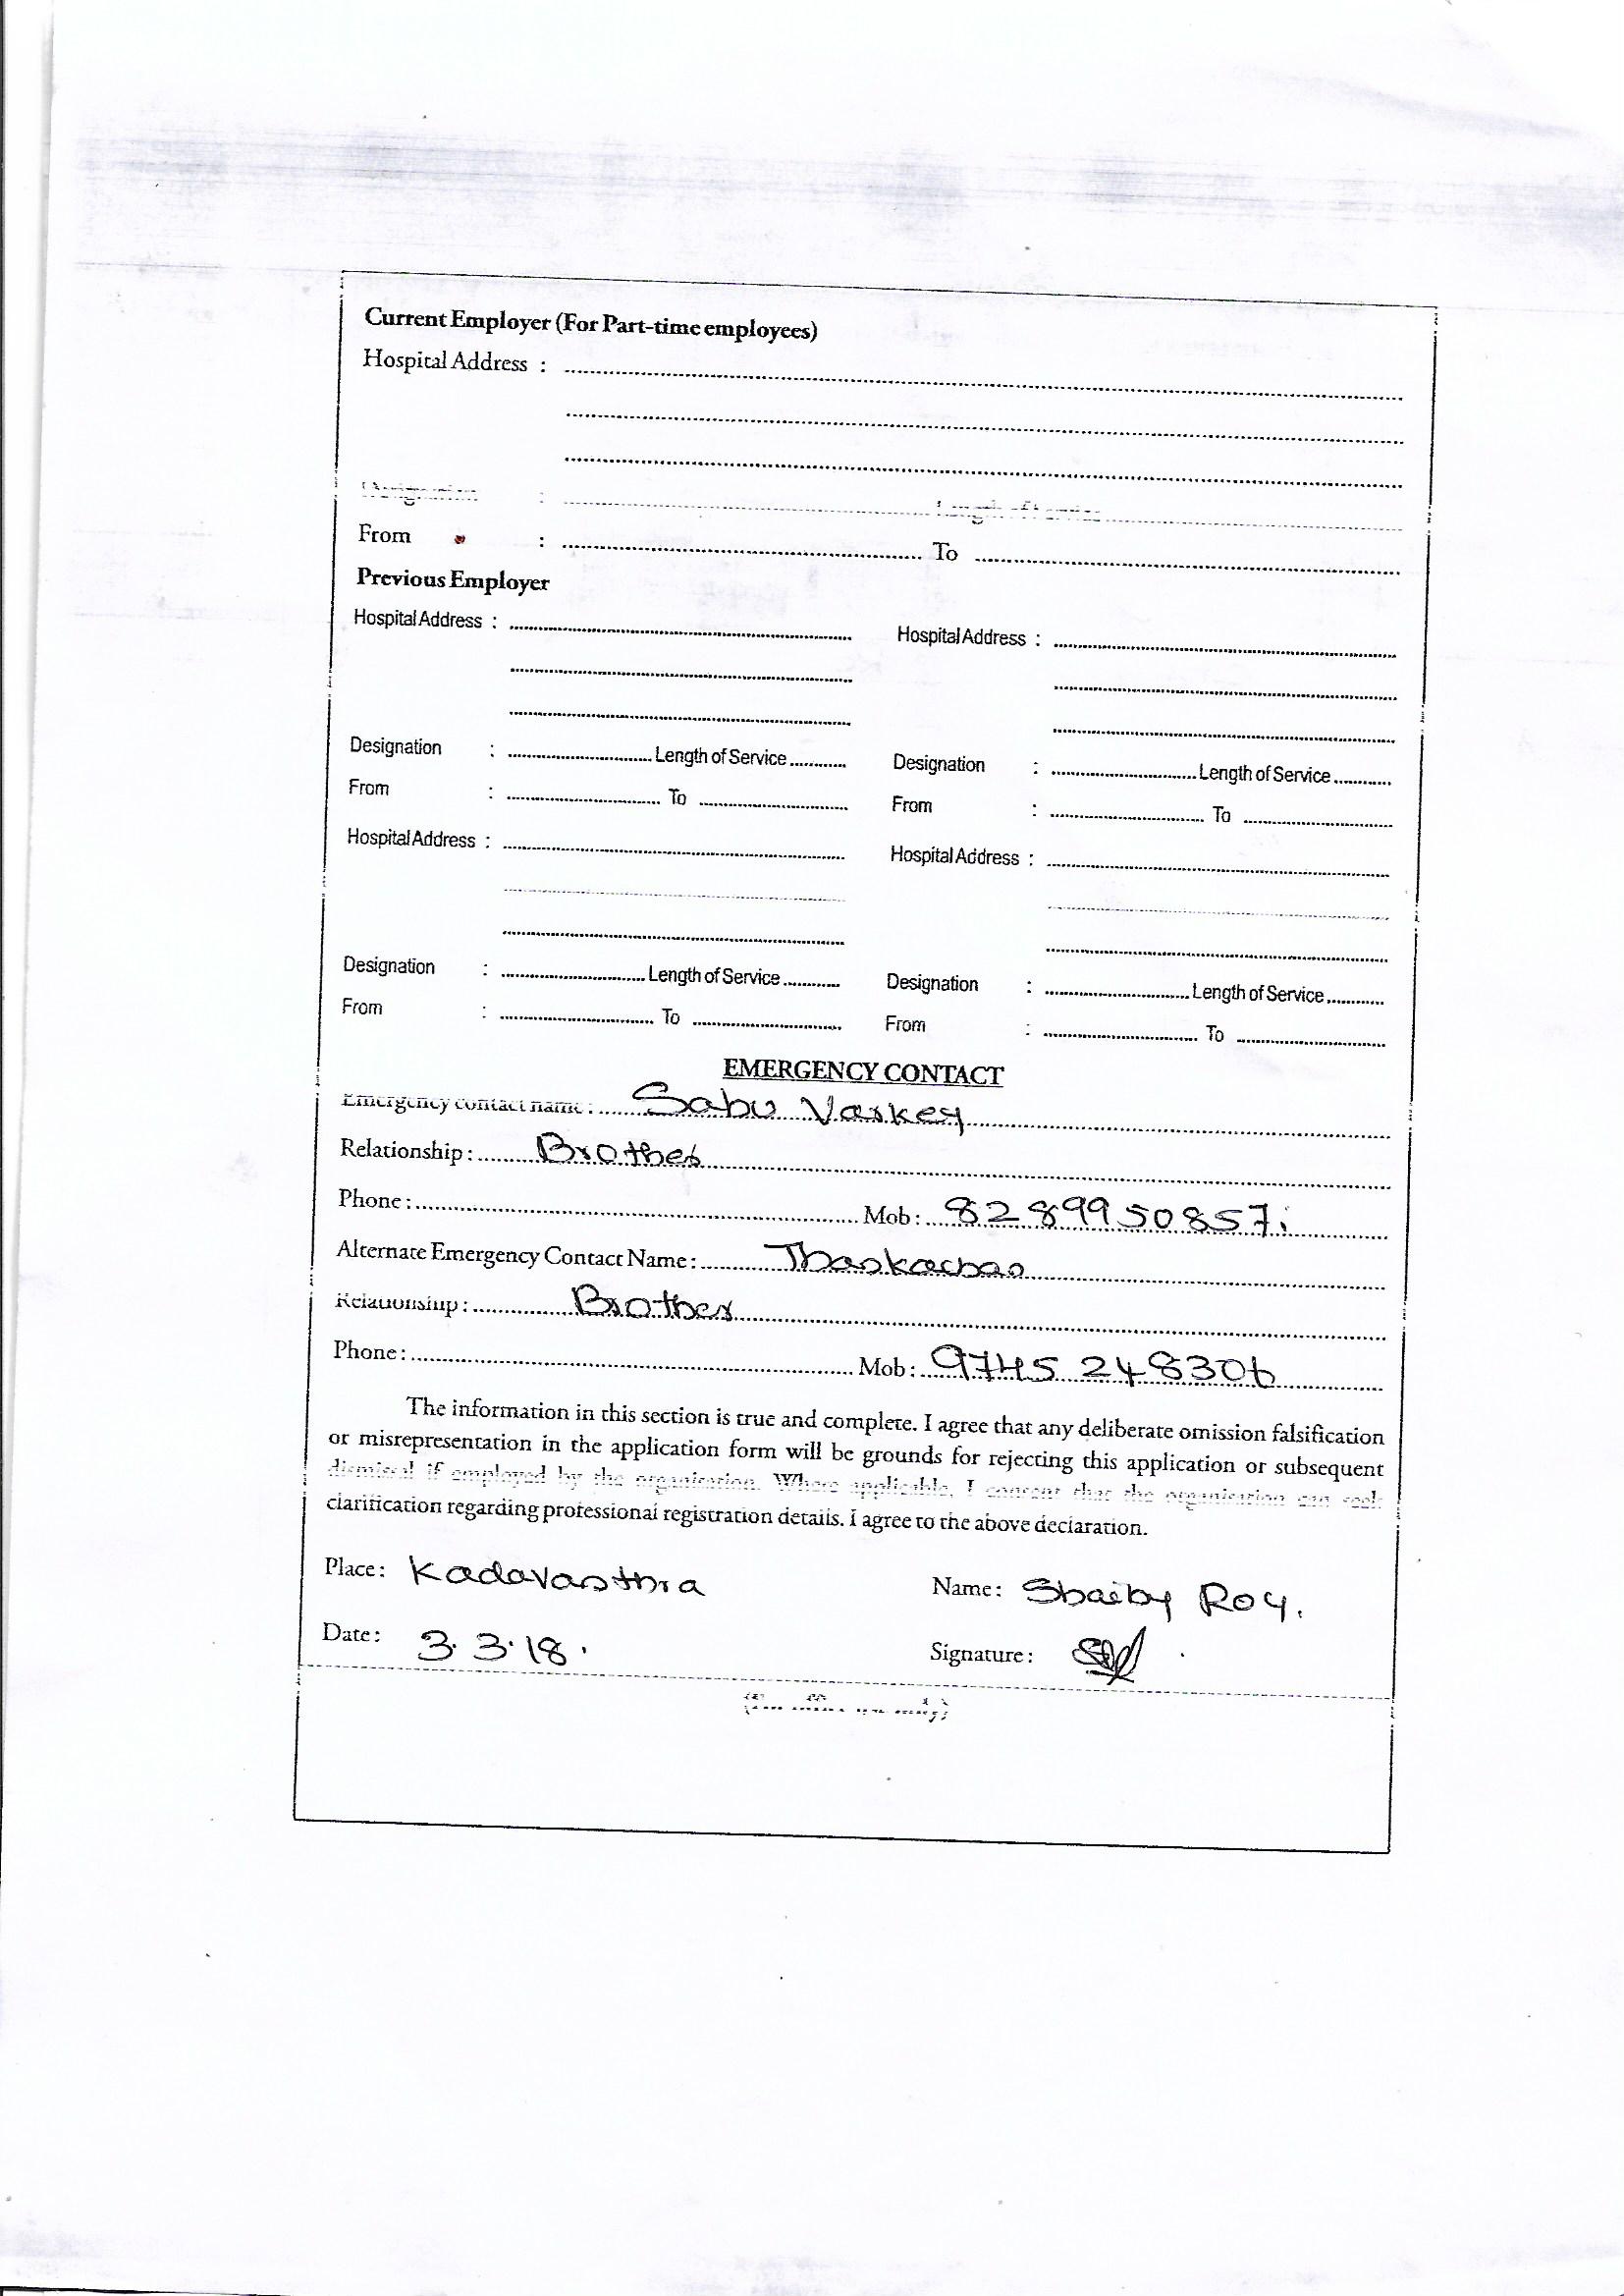 Current Employer (For Part-time employees)
Hospital Address :
Designation : Length of Service
From : To
Previous Employer
Hospital Address : Hospital Address :
Designation : Length of Service Designation : Length of Service
From : To From : To
Hospital Address : Hospital Address :
Designation : Length of Service Designation : Length of Service
From : To From : To
EMERGENCY CONTACT
Emergency contact name : Sabu Varkey
Relationship : Brother
Phone : Mob : 8289950857.
Alternate Emergency Contact Name : Thankachan
Relationship : Brother
Phone : Mob : 9745 248306
The information in this section is true and complete. I agree that any deliberate omission falsification
or misrepresentation in the application form will be grounds for rejecting this application or subsequent
dismissal if employed by the organisation. Where applicable, I consent that the organisation can seek
clarification regarding professional registration details. I agree to the above declaration.
Place : Kadavanthra Name : Shaiby Roy.
Date : 3.3.18. Signature :
(For office use only)